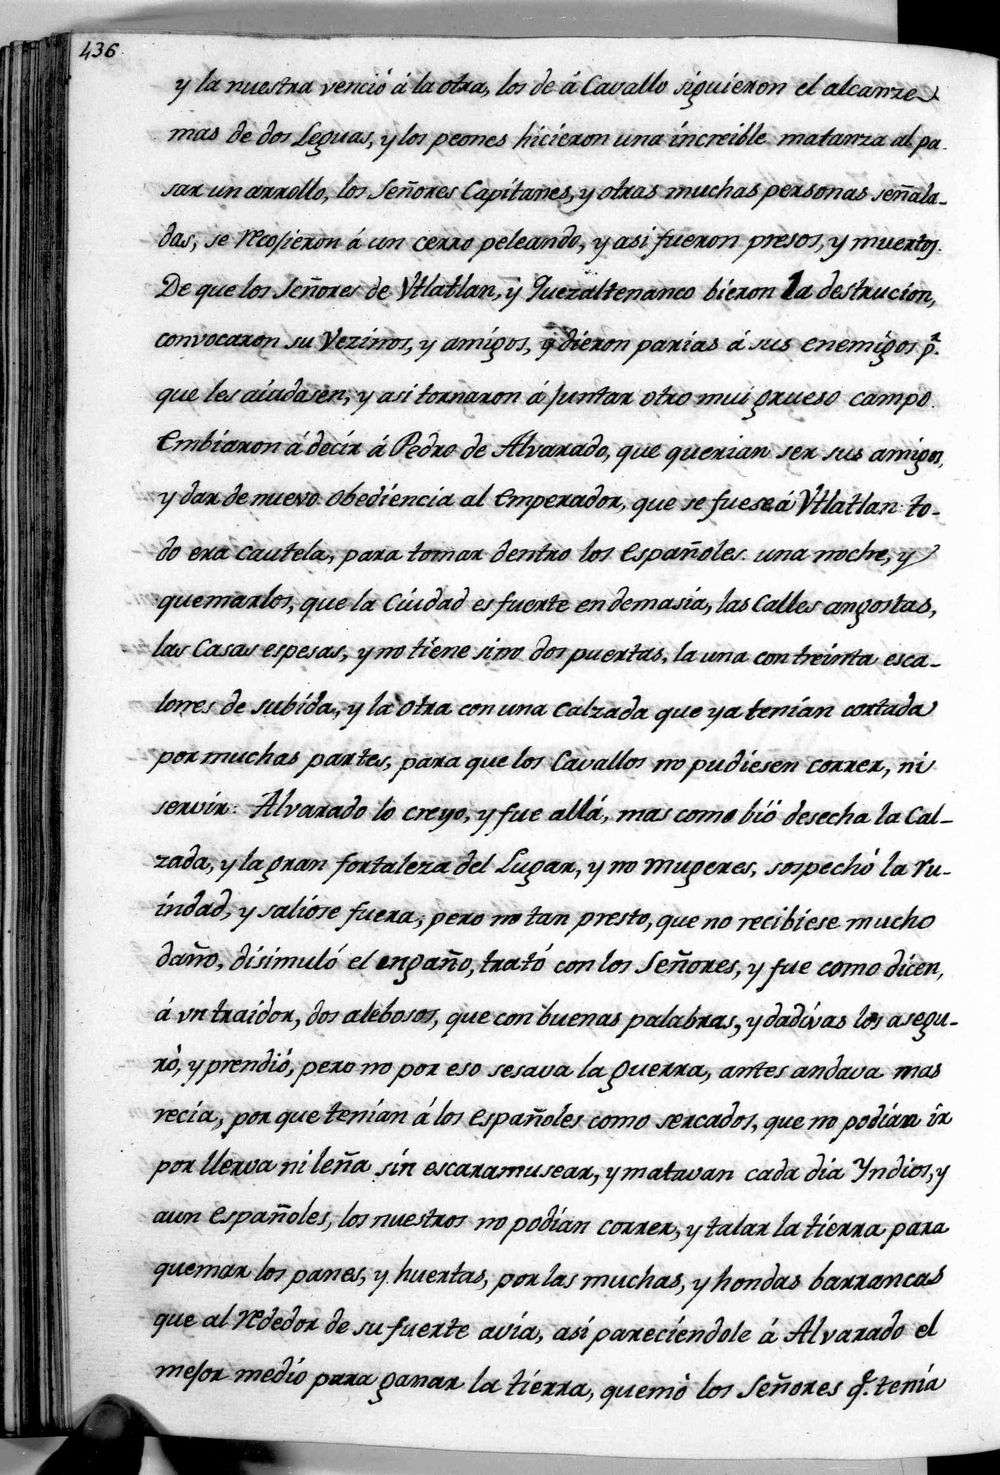 436
y la nuestra venció á la otra, los de á Cavallo siguieron el alcanze
mas de dos Leguas, y los peones hicieron una increible matanza al pa-
sar un arrollo, los Señores Capitanes, y otras muchas personas señala-
das, se recojieron á un cerro peleando, y asi fueron presos, y muertos.
De que los Señores de Vtlatlan, y Quezaltenanco bieron la destrucion,
convocaron su Vezinos, y amigos, y dieron parias á sus enemigos pª.
que les aiudasen, y asi tornaron á juntar otro mui grueso campo.
Embiaron á decir á Pedro de Alvarado, que querian ser sus amigos,
y dar de nuevo obediencia al Emperador, que se fuese á Vtlatlan: to-
do era cautela, para tomar dentro los Españoles una noche, y
quemarlos, que la Ciudad es fuerte en demasia, las Calles angostas,
las Casas espesas, y no tiene sino dos puertas, la una con treinta esca-
lones de subida, y la otra con una Calzada que ya tenian cortada
por muchas partes, para que los Cavallos no pudiesen correr, ni
servir: Alvarado lo creyo, y fue allá, mas como bió desecha la Cal-
zada, y la gran fortaleza del Lugar, y no mugeres, sospechó la ru-
indad, y saliose fuera, pero no tan presto, que no recibiese mucho
daño, disimuló el engaño, trató con los Señores, y fue como dicen,
á vn traidor, dos alebosos, que con buenas palabras, y dadivas los asegu-
ró, y prendió, pero no por eso sesava la guerra, antes andava mas
recia, por que tenian á los Españoles como sercados, que no podian ir
por llerva ni leña sin escaramusear, y matavan cada dia Yndios, y
aun Españoles, los nuestros no podian correr, y talar la tierra para
quemar los panes, y huertas, por las muchas, y hondas barrancas
que al rededor de su fuerte avia, asi pareciendole á Alvarado el
mejor medio para ganar la tierra, quemó los Señores q.e tenia